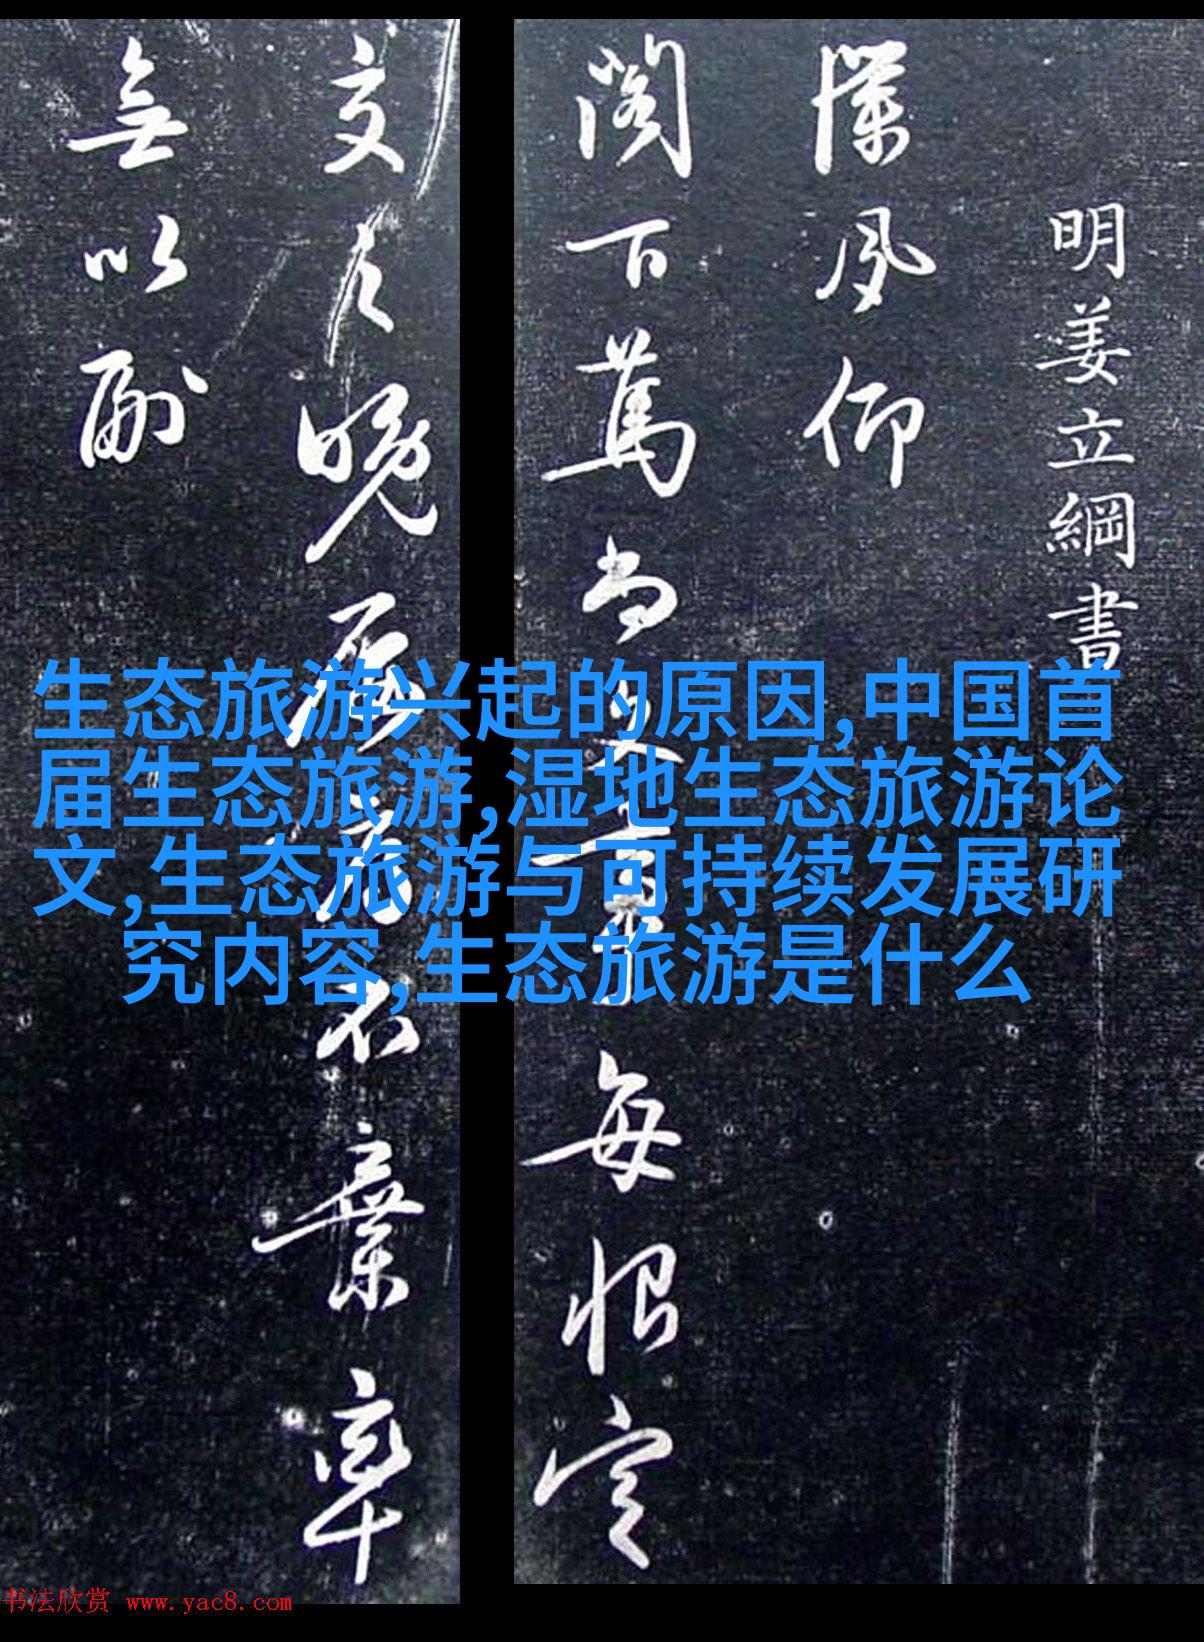 明姜立綱書
仰
閣百萬尚
每恨空
交
晚
棄率
無以副
生态旅游兴起的原因,中国首
届生态旅游,湿地生态旅游论
文,生态旅游与可持续发展研
究内容,生态旅游是什么
书法欣赏 www.yac8.com